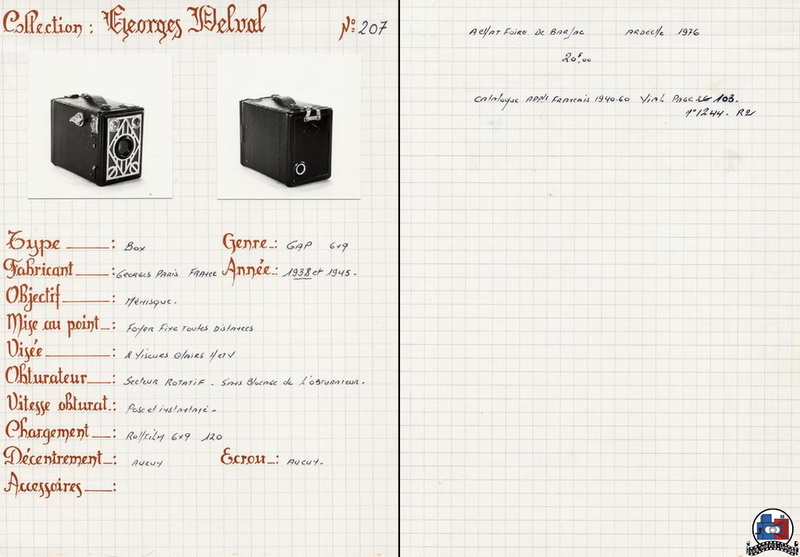 Collection : Georges Delval N° 207
Type : Box Genre : GAP 6x9
Fabricant : Georges Paris France Année : 1938 et 1945.
Objectif : Ménisque.
Mise au point : Foyer Fixe toutes distances
Visée : 2 Viseurs clairs H et V
Obturateur : Secteur Rotatif . Sans Blocage de l'obturateur.
Vitesse obturat. : Pose et instantané -
Chargement : Rollfilm 6x9 120
Décentrement : aucun Ecrou : aucun.
Accessoires :
Achat Foire De Barjac Ardeche 1976
20F,00
Catalogue APP^ls Francais 1940-60 Vial Page 103.
n° 1244. R2